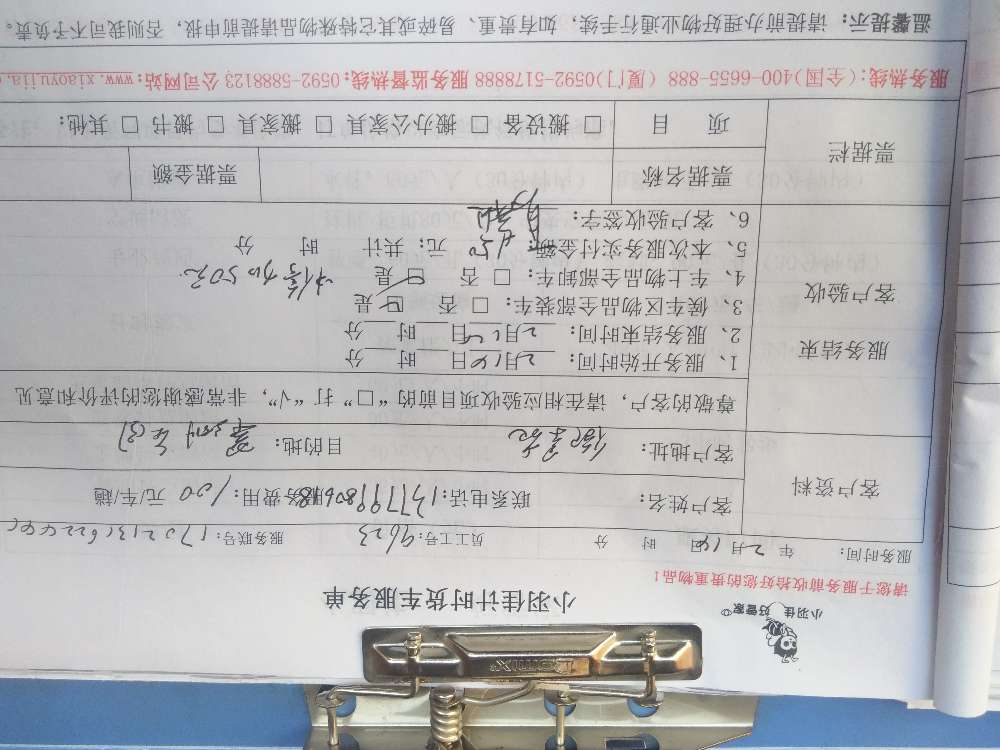 小羽佳 好管家
小羽佳计时货车服务单
请您于服务前收拾好您的贵重物品！
服务时间： 年 2月16日 时 分 员工工号：9623 服务联号：
客户资料
客户姓名： 联系电话： 服务费用：100 元/车/趟
客户地址： 目的地：
尊敬的客户，请在相应验收项目前的“□”打“√”，非常感谢您的评价和意见
服务结束
客户验收
1、服务开始时间：2月16日 时 分
2、服务结束时间：2月16日 时 分
3、候车区物品全部装车：□ 否 □ 是
4、车上物品全部卸车：□ 否 □ 是
5、本次服务实付金额：150 元；共计 时 分
6、客户验收签字：
票据栏
票据名称 票据金额
项 目 □ 搬设备 □ 搬办公家具 □ 搬家具 □ 搬书 □ 其他：
服务热线：(全国)400-6655-888 (厦门)0592-5178888 服务监督热线：0592-5888123 公司网站：www.xiaoyujia.
温馨提示：请提前办理好物业通行手续，如有贵重、易碎或其它特殊物品请提前申报，否则我司不予负责。
Bomix